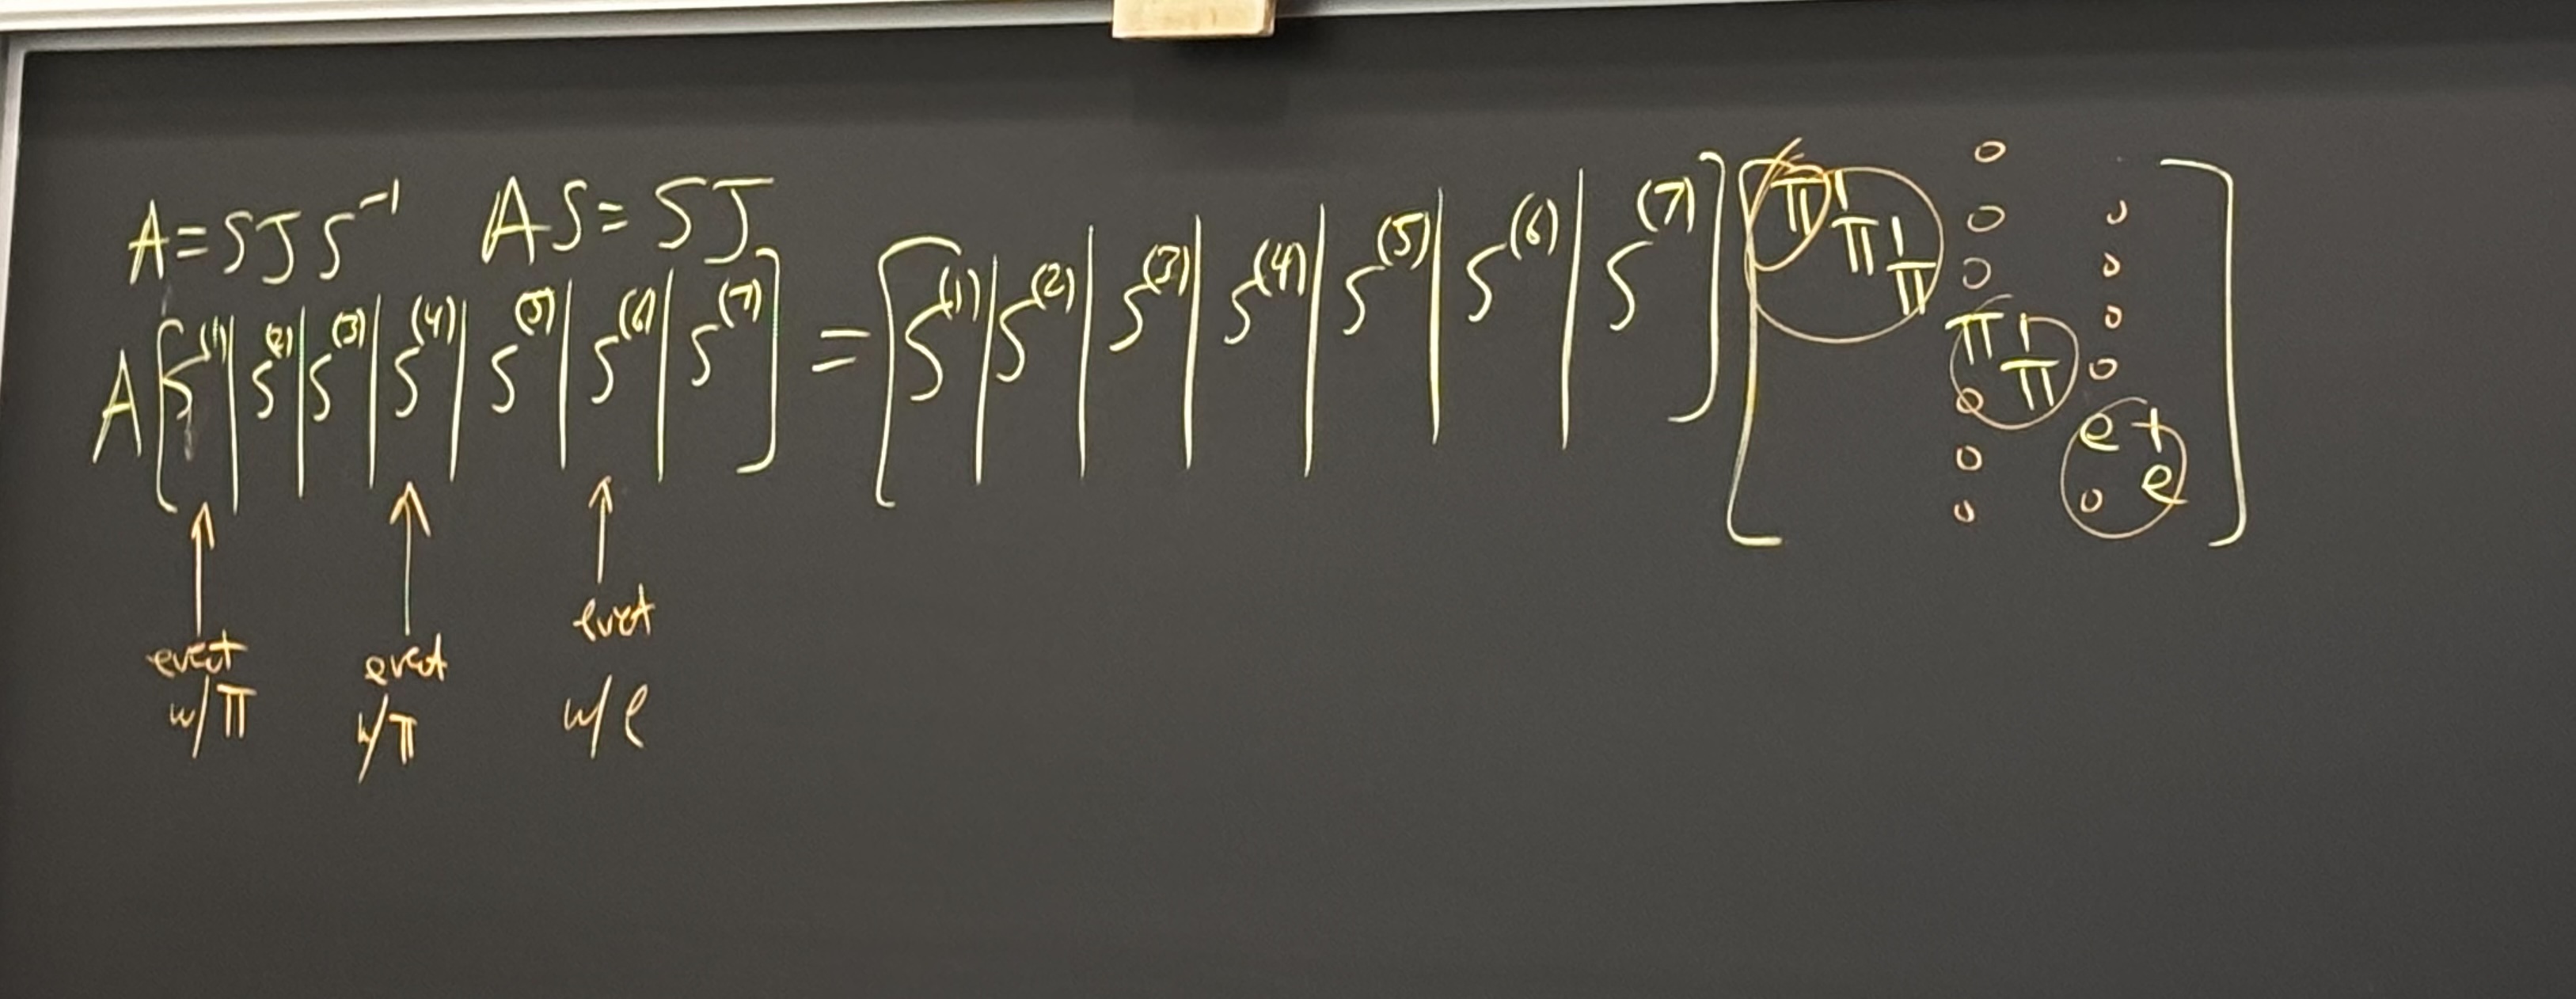 A=SJS⁻¹ AS=SJ
A[S⁽¹⁾|S⁽²⁾|S⁽³⁾|S⁽⁴⁾|S⁽⁵⁾|S⁽⁶⁾|S⁽⁷⁾] = [S⁽¹⁾|S⁽²⁾|S⁽³⁾|S⁽⁴⁾|S⁽⁵⁾|S⁽⁶⁾|S⁽⁷⁾]
π 1 0
π 1 0 0
π 0 0
π 1 0
0 π 0
0 e 1
0 0 e
↑ ↑ ↑
evect evect evect
w/π w/π w/e